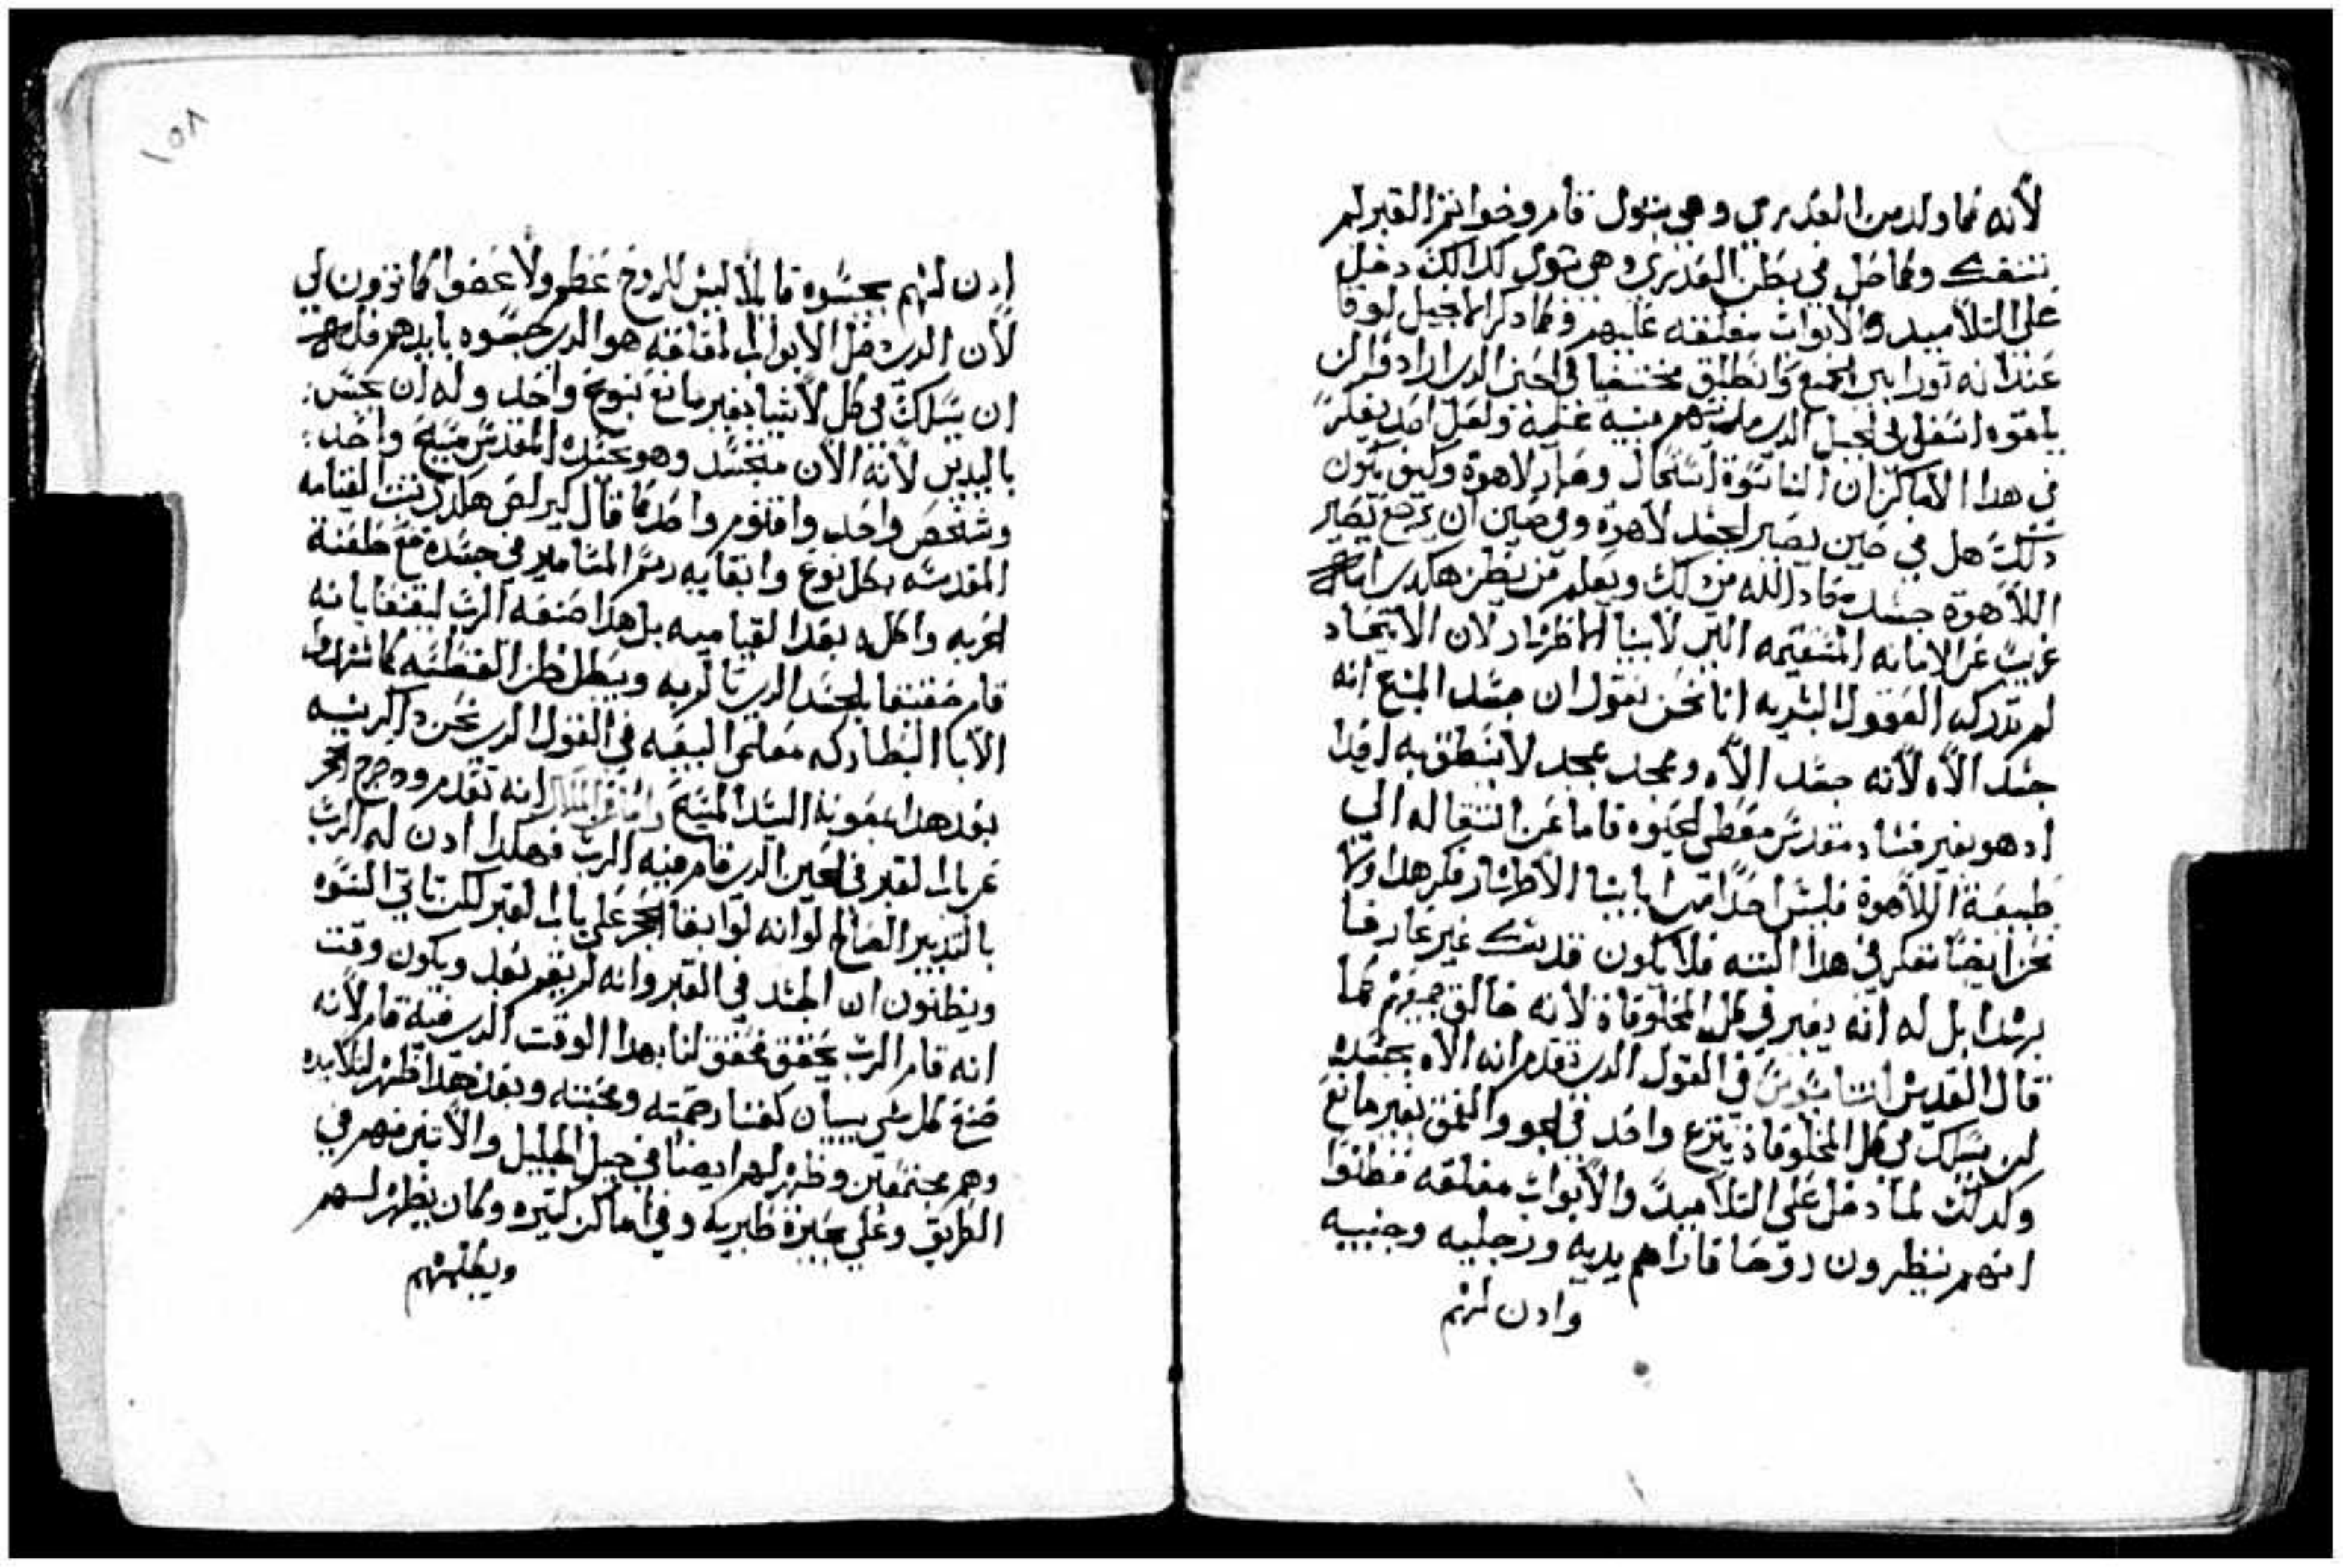 لأنه كما ولد من العدري وهي بتول قام وخواتم القبر لم
تنفك وكما حل في بطن العدري وهي بتول كدالك دخل
على التلاميد والأبواب مغلقه عليهم وكما دكر الانجيل لوقا
عنه انه تورا بين الجمع وانطلق مختفيا في الحين الدي ارادوا ان
يلقوه اسفل الجبل الدي مدينتهم مبنيه عليه ولعل احد يفكر
في هدا الأماكن ان الناسوة استحال وصار لاهوة وكيف يكون
دلك هل في حين يصير الجسد لاهوة وفي حين ان يرجع يصير
اللاهوة جسد معاد الله من دلك ويعلم من يظن هكدي انه
غريب عن الامانه المستقيمه التي لأبينا الماطرشار لان الاتحاد
لم تدركه العقول البشريه انا نحن نقول ان جسد المسيح انه
جسد الأه لأنه جسد الأه وممجد بمجد لا ينطق به احدا
اد هو بغير فساد مقدس معطي الحيوه فاما عن انتقاله الي
طبيعة اللاهوة فليس احدا من ابايينا الأطرشار فكر هدا ولا
نحن ايضا نفكر في هدا البته فلا يكون قد يتك غير عارفا
برشدا بل له انه يغير في كل المخلوقاة لأنه خالق جميعهم كما
قال القديس اتناسيوس في القول الدي تقدم انه الأه بجسده
ان يسلك في كل المخلوقاة بنوع واحد في الجو والعمق بغير مانع
وكدلك لما دخل على التلاميد والأبواب مغلقه فظنوا
انهم ينظرون روحا فاراهم يديه ورجليه وجنبيه
وادن لهم
١٥٨
ادن لهم يجسوه قايلا ليس للروح عظم ولا عضوا كما ترون لي
لأن الدي دخل الأبواب مغلقه هو الدي جسوه بايديهم فله
ان يسلك في كل لأشيا بغير مانع بنوع واحد وله ان يجس
باليدين لأنه الأن متجسد وهو بجسده المقدس مسيح واحد
وشخص واحد واقنوم واحد كما قال كيرلص هكدي تبت القيامه
المقدسه بكل نوع وابقايه رسم المسامير في جسده مع طعنة
الحربه واكله بعد القياميه بل هدا صنعه الرب ليقنعنا بانه
قام حقيقا بالجسد الدي تالم به ويبطل ظن الفنطسه كما شهدوا
الأبا البطاركه معلمي البيعه في القول الدي نحن داكرينه
بعد هدا بمعونة السيد المسيح انه تقدم ودحرج الحجر
عن باب القبر في الحين الدي قام فيه الرب فهكدا ادن له الرب
بالتدبير الصالح لوانه لو ابقا الحجر على باب القبر لكن تاتي النسوه
ويظنون ان الجسد في القبر وانه لم يقم بعد ويكون وقت
انه قام الرب يحقق تحقق لنا بهدا الوقت الدي فيه قام لأنه
صنع كل شي بيان كعنا رحمته ومحبته وبعد هدا ظهر لتلاميده
وهم مجتمعين وظهر لهم ايضا في جبل الجليل والأتنين منهم في
الطريق وعلي بحيرة طبريه وفي اماكن كتيره وكان يظهر لهم
ويطلبهم